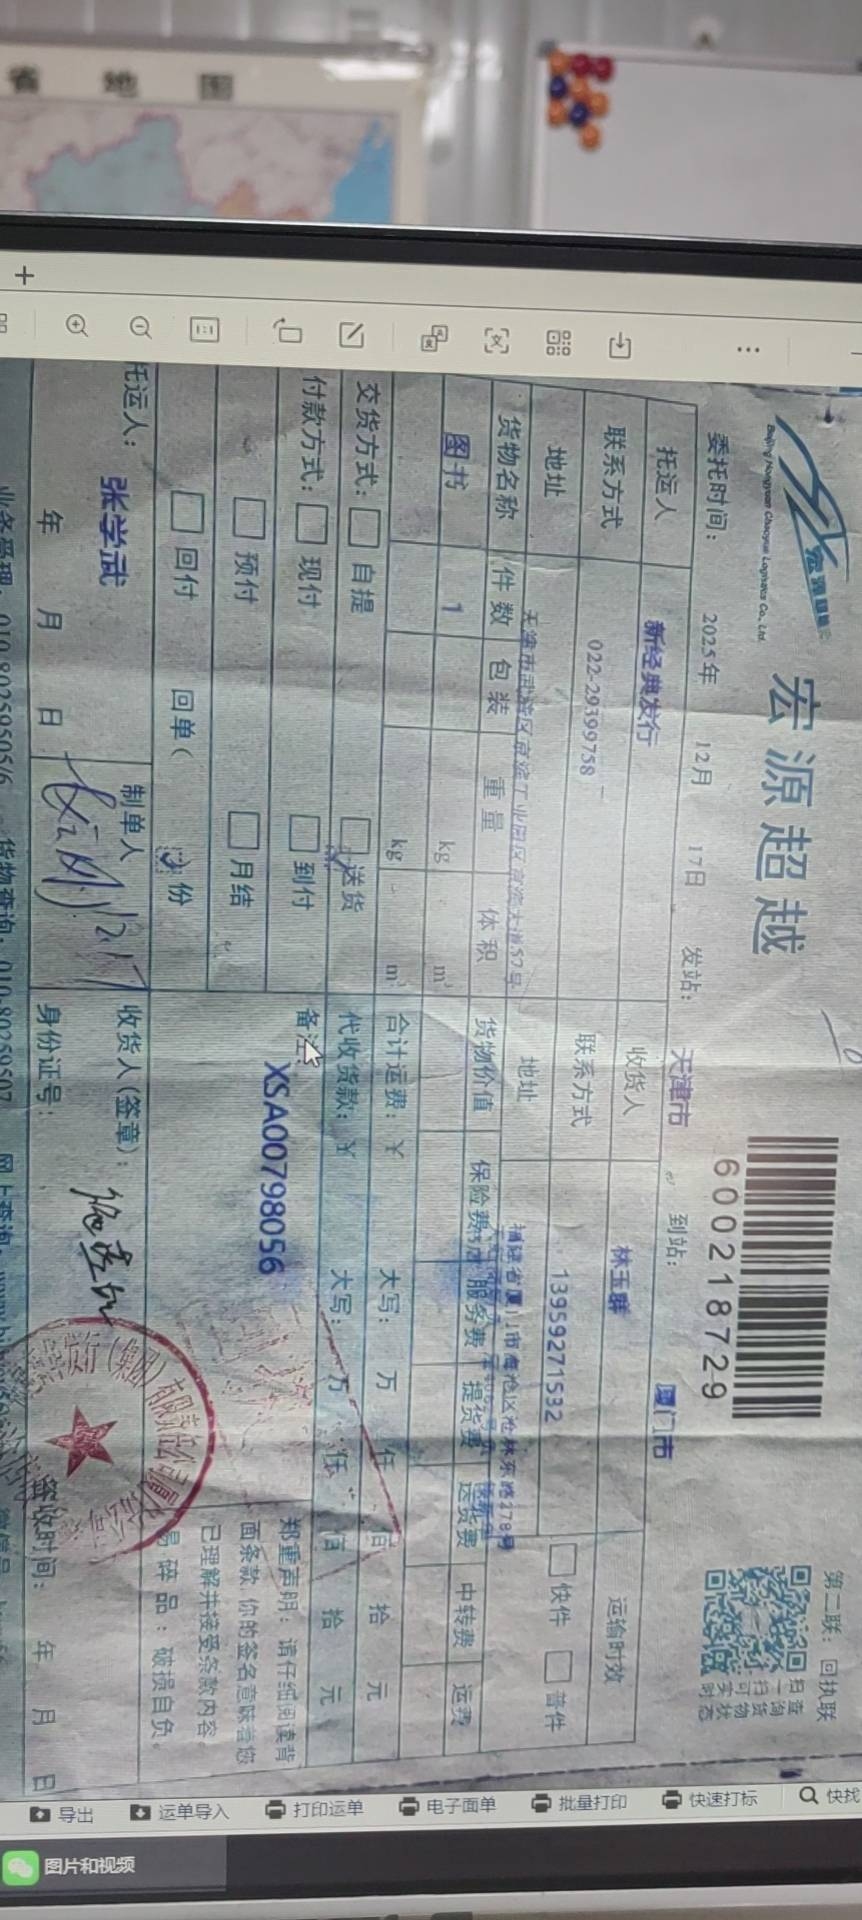 省 地 图
宏源超越
Beijing Hongyuan Chaoyue Logistics Co., Ltd.
宏源超越
600218729
第二联：回执联
扫一扫
查询货物状态
委托时间： 2025年 12月 17日 发站： 天津市 到站： 厦门市
托运人 新经典发行 收货人 林玉群 运输时效
联系方式 022-29399758 联系方式 13959271532 快件 普件
地址 天津市武清区京滨工业园区京滨大道57号 地址 福建省厦门市海沧区沧林东路278号
货物名称 件数 包装 重量 体积 货物价值 保险费 服务费 提货费 送货费 中转费 运费
图书 1 kg m³
kg m³ 合计运费：¥ 大写： 万 仟 佰 拾 元
交货方式： 自提 送货 代收货款：¥ 大写： 万 仟 佰 拾 元
付款方式： 现付 到付 备注：
预付 月结 XSA00798056
回付 回单（ 份
郑重声明：请仔细阅读背
面条款 你的签名意味着您
已理解并接受条款内容。
易碎品：破损自负。
托运人： 张学武 制单人 收货人(签章)：
年 月 日 12.17 身份证号： 签收时间： 年 月 日
业务受理：010-80259505/6 货物查询：010-80259507 网上查询：
导出
运单导入
打印运单
电子面单
批量打印
快速打标
快找
图片和视频